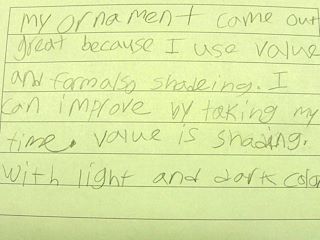 my ornament came out
great because I use value
and form also shadeing. I
can improve by taking my
time. value is shading.
with light and dark color